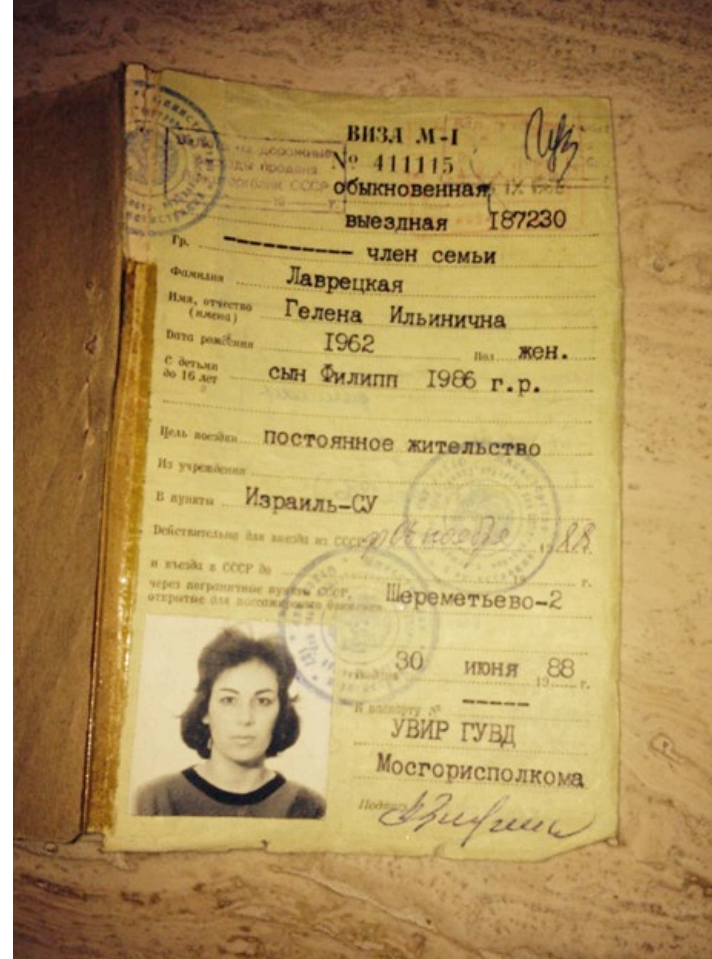 ВИЗА М-I
на дорожные
№ 411115
СССР
обыкновенная
выездная I87230
Гр. ---------- член семьи
Фамилия Лаврецкая
Имя, отчество (имена) Гелена Ильинична
Дата рождения I962 Пол жен.
С детьми до 16 лет сын Филипп I986 г.р.
Цель поездки постоянное жительство
Из учреждения
В пункты Израиль-СУ
Действительна для выезда из СССР до 19 88
и въезда в СССР до 19 г.
через пограничные пункты СССР, Шереметьево-2
открытые для пассажирского движения
Выдана 30 июня 19 88 г.
К паспорту № ------
УВИР ГУВД
Мосгорисполкома
Подпись